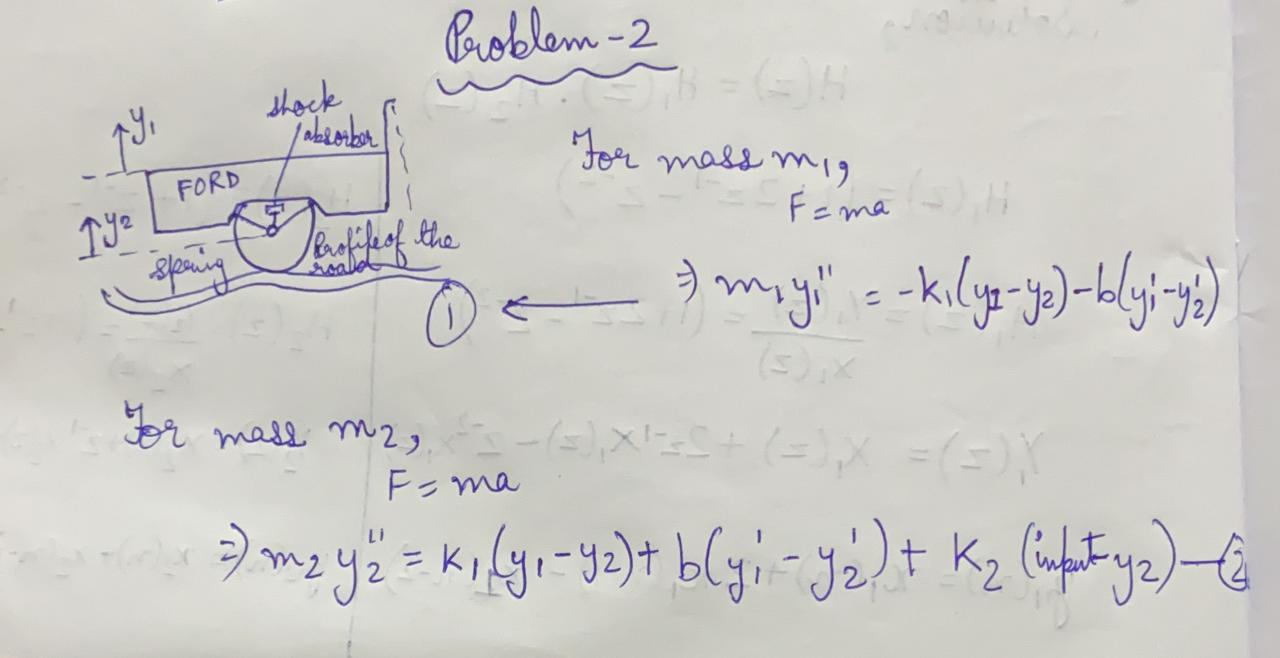 Problem-2
shock
absorber
y₁
FORD
y₂
spring
Profile of the
road
For mass m₁,
F = ma
⇒ m₁y₁'' = -k₁(y₁-y₂)-b(y₁'-y₂')
①
For mass m₂,
F = ma
⇒ m₂y₂'' = k₁(y₁-y₂)+ b(y₁' - y₂') + K₂ (input-y₂)—②